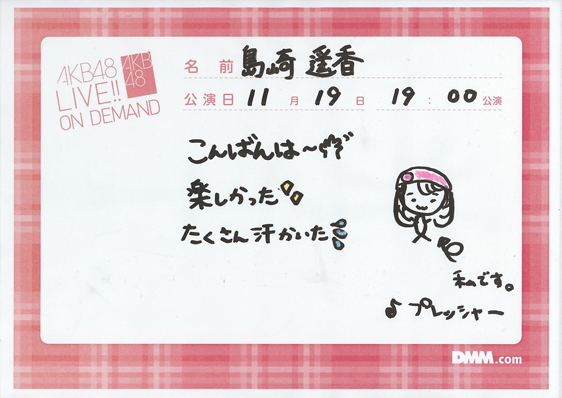 AKB48
LIVE!!
ON DEMAND
AKB
48
名前 島崎 遥香
公演日 11月19日 19:00公演
こんばんは〜
楽しかった
たくさん汗かいた
私です。
♪プレッシャー
DMM.com